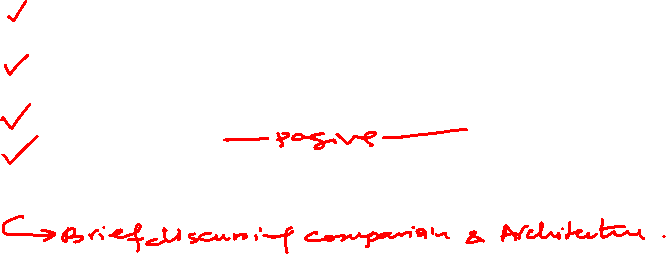 ✓
✓
✓
✓
— posive —
↳ Brief discussing comparison & Architecture.